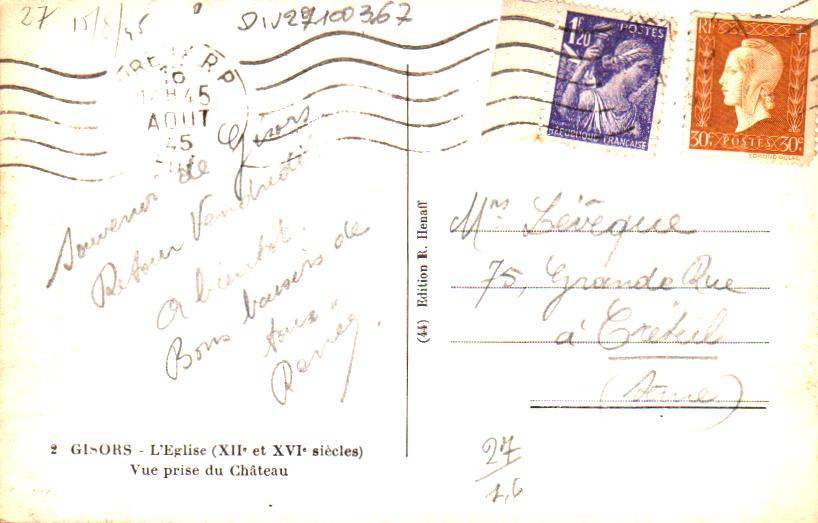 27 15/8/45
DIV27100367
16
12H45
AOUT
45
1F
1F20
POSTES
REPUBLIQUE FRANÇAISE
RF
30c POSTES 30c
EDMOND DULAC
Souvenir de Gisors
Retour Vendredi
A bientôt.
Bons baisers de
tous
(44) Edition R. Henaff
Mrs Lévêque
75, Grande Rue
à Créteil
(Seine)
2 GISORS - L'Eglise (XIIe et XVIe siècles)
Vue prise du Château
27
1,6